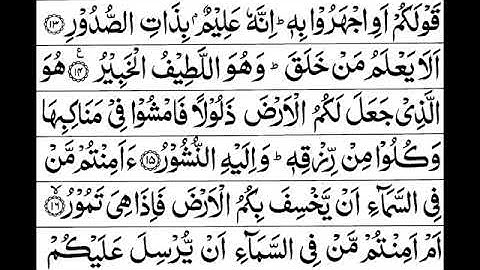 قَوۡلَكُمۡ اَوِ اجۡهَرُوۡا بِهٖؕ اِنَّهٗ عَلِيۡمٌۢ بِذَاتِ الصُّدُوۡرِ ﴿۱۳﴾
اَلَا يَعۡلَمُ مَنۡ خَلَقَؕ وَهُوَ اللَّطِيۡفُ الۡخَبِيۡرُ ﴿۱۴﴾ع هُوَ
الَّذِىۡ جَعَلَ لَكُمُ الۡاَرۡضَ ذَلُوۡلًا فَامۡشُوۡا فِىۡ مَنَاكِبِهَا
وَكُلُوۡا مِنۡ رِّزۡقِهٖؕ وَاِلَيۡهِ النُّشُوۡرُ ﴿۱۵﴾ ءَاَمِنۡتُمۡ مَّنۡ
فِى السَّمَآءِ اَنۡ يَّخۡسِفَ بِكُمُ الۡاَرۡضَ فَاِذَا هِىَ تَمُوۡرُۙ ﴿۱۶﴾
اَمۡ اَمِنۡتُمۡ مَّنۡ فِى السَّمَآءِ اَنۡ يُّرۡسِلَ عَلَيۡكُمۡ